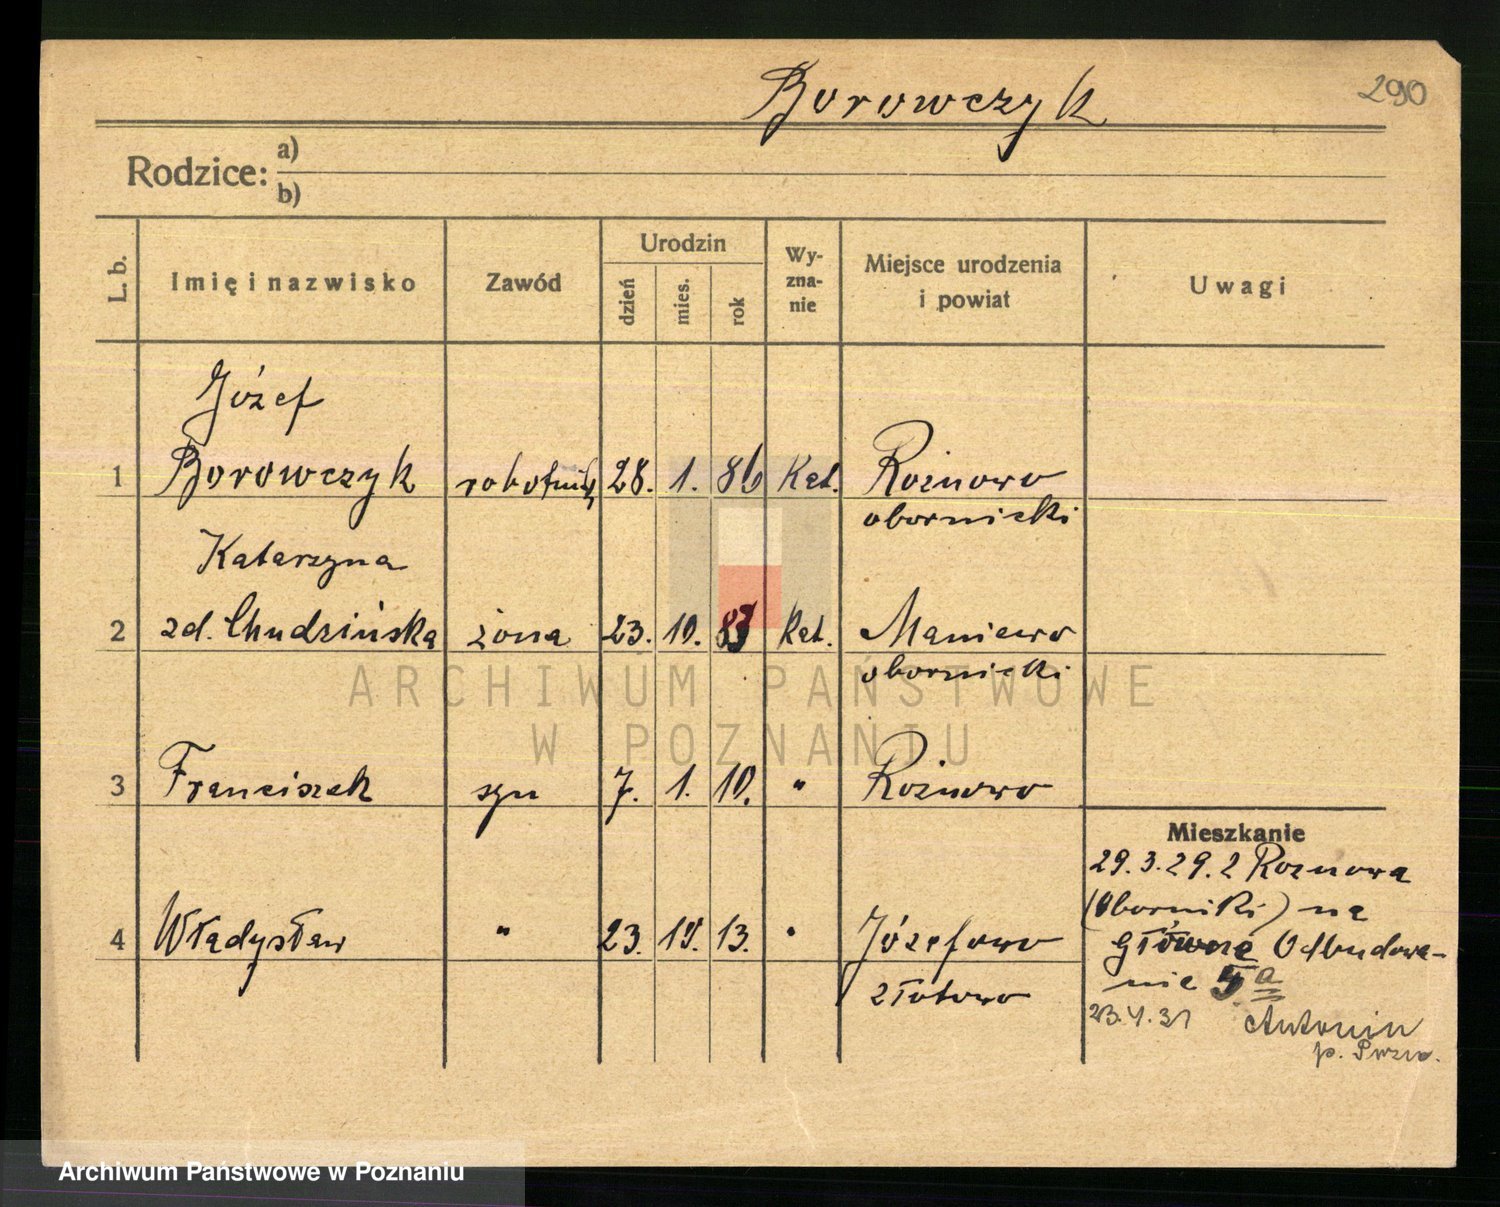 Borowczyk
290
Rodzice: a)
b)
L. b. Imię i nazwisko Zawód Urodzin dzień mies. rok Wy-zna-nie Miejsce urodzenia i powiat Uwagi
Józef
1 Borowczyk robotnik 28. 1. 86 Kat. Rożnowo
obornicki
Katarzyna
2 zd. Chudzińska żona 23. 10. Kat. Maniewo
obornicki
ARCHIWUM PAŃSTWOWE
W POZNANIU
3 Franciszek syn 7. 1. 10. " Rożnowo
Mieszkanie
29.3.29. z Rożnowa
(Oborniki) na
4 Władysław " 23. 13. " Józefowo
Główne Odbudowa-
nie a
złotowo
23.4.31 Antonin
p.
Archiwum Państwowe w Poznaniu